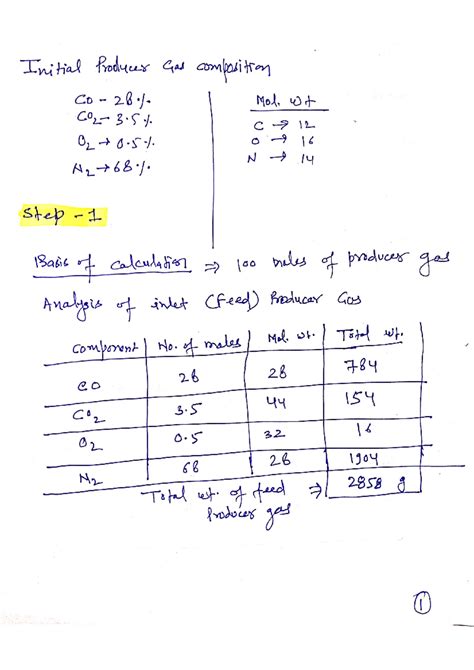 Initial Producer Gas composition
CO - 28 %.
CO2 - 3.5 %.
O2 → 0.5 %.
N2 → 68 %.
Mol. wt
C → 12
O → 16
N → 14
Step - 1
Basis of calculation ⇒ 100 moles of producer gas
Analysis of inlet (feed) Producer Gas
Component No. of moles Mol. wt. Total wt.
CO 28 28 784
CO2 3.5 44 154
O2 0.5 32 16
N2 68 28 1904
Total wt. of feed Producer gas ⇒ 2858 g
1